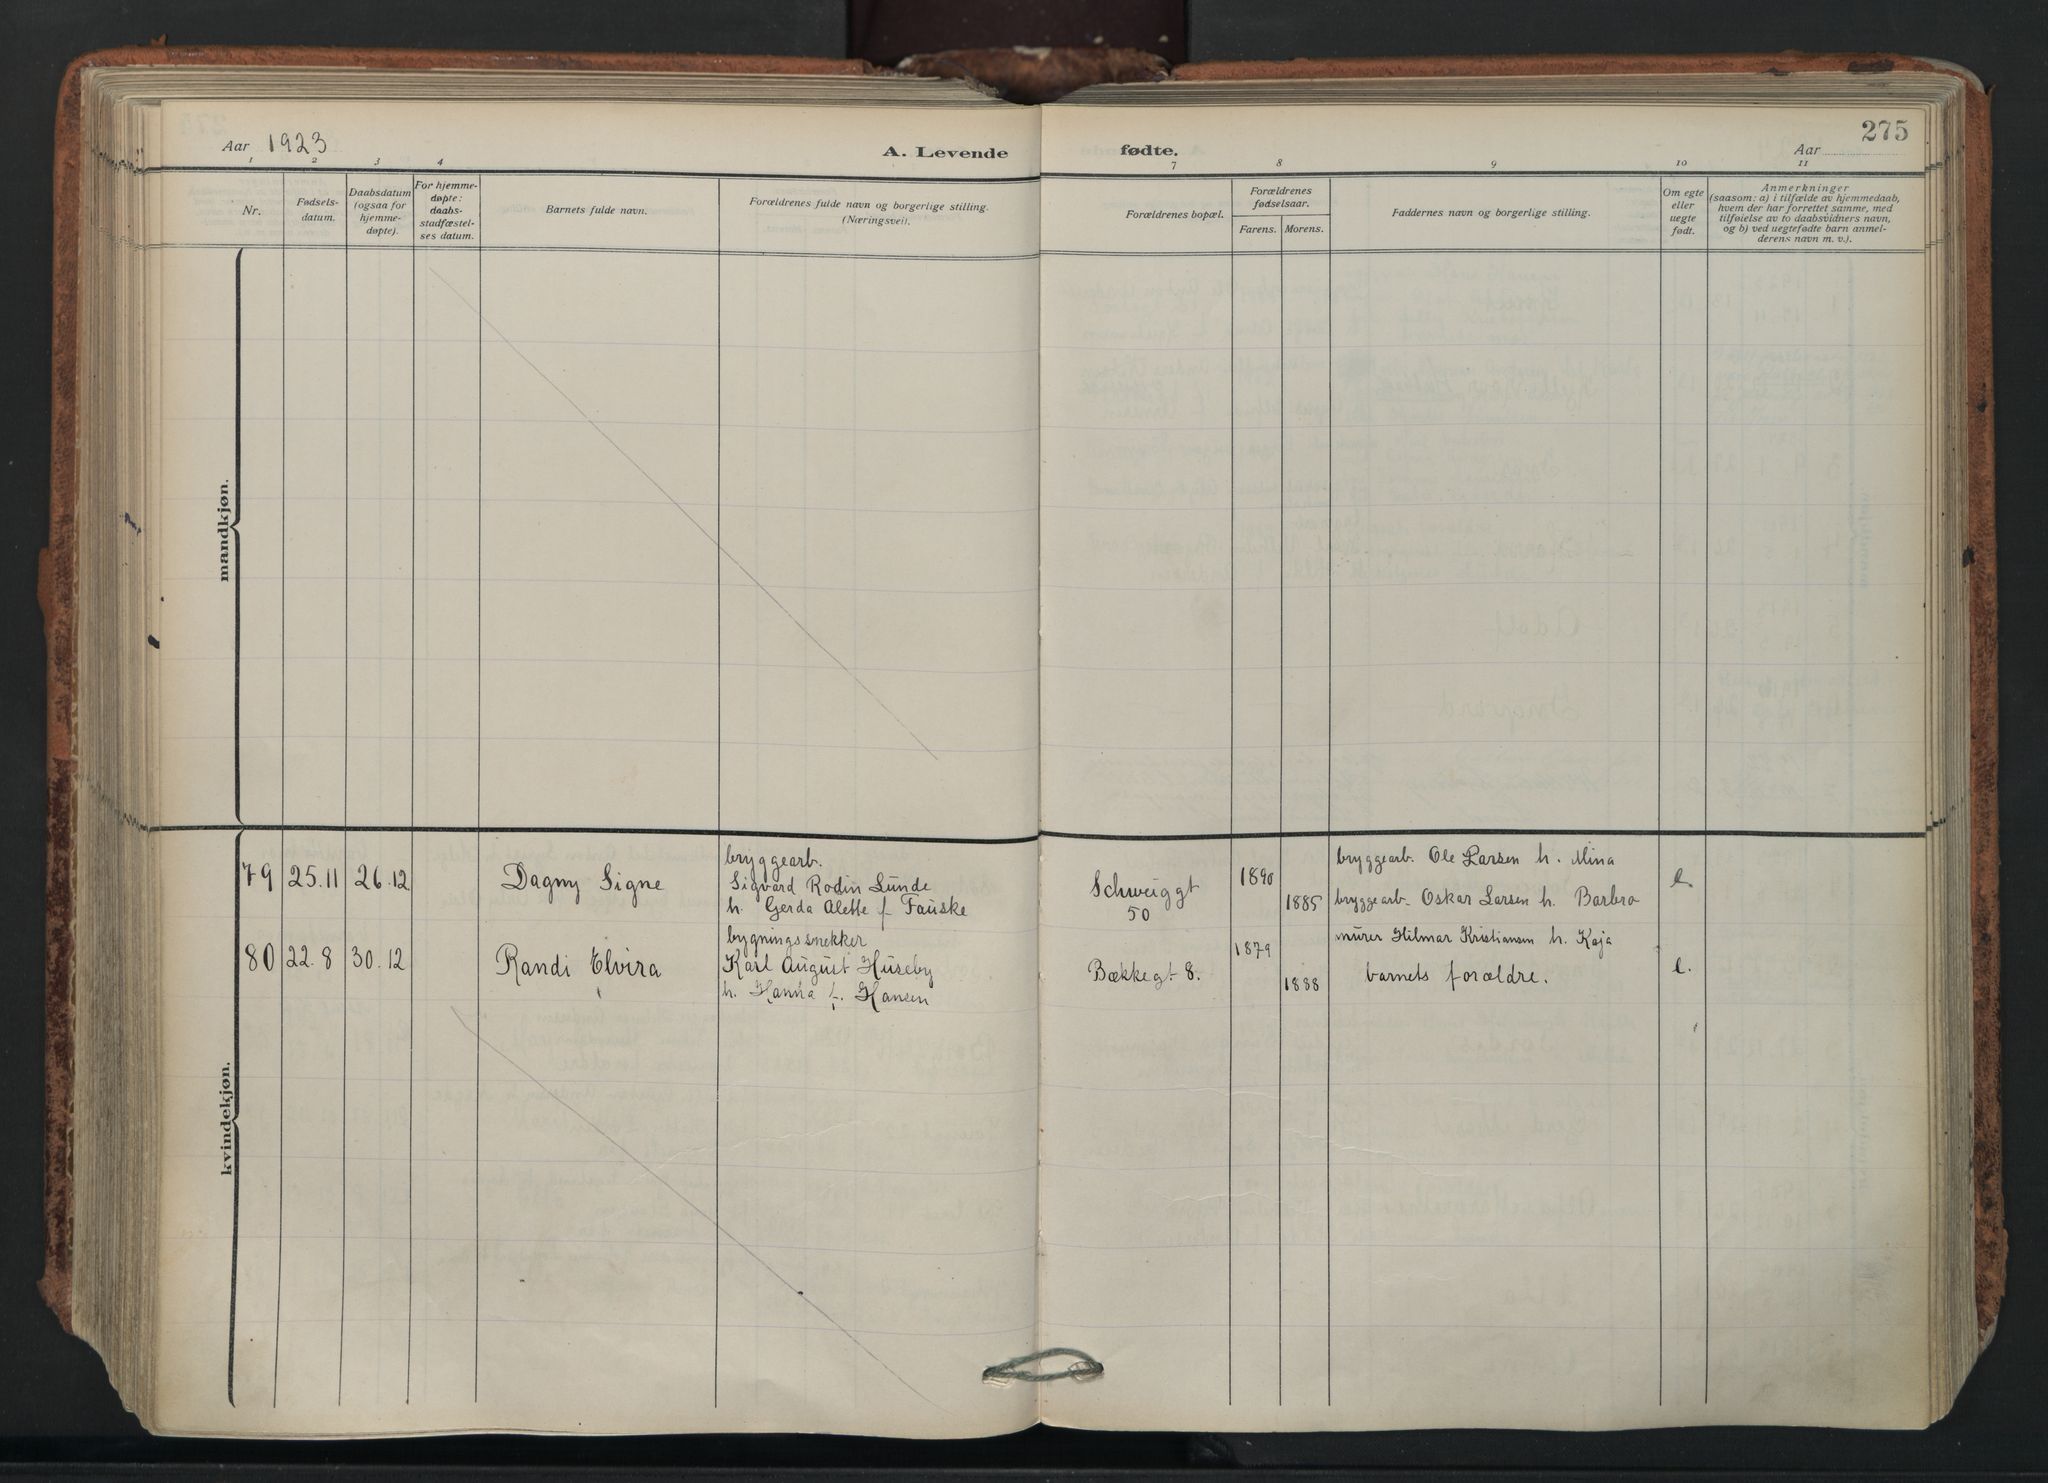 275
Aar 1923
A. Levende fødte.
Aar
1 2 3 4 7 8 9 10 11
Nr.
Fødselsdatum.
Daabsdatum (ogsaa for hjemmedøpte).
For hjemmedøpte: daabsstadfæstelses datum.
Barnets fulde navn.
Forældrenes fulde navn og borgerlige stilling. (Næringsvei).
Forældrenes bopæl.
Forældrenes fødselsaar.
Farens. Morens.
Faddernes navn og borgerlige stilling.
Om egte eller uegte født.
Anmerkninger
(saasom: a) i tilfælde av hjemmedaab, hvem der har forrettet samme, med tilføielse av to daabsvidners navn, og b) ved uegtefødte barn anmelderens navn m. v.).
mandkjøn.
kvindekjøn.
79 25.11 26.12 Dagny Signe
bryggearb.
Sigvard Rodin Lunde
h. Gerda Alette f. Fauske
Schweiggt
50
1890
1885
bryggearb. Ole Larsen h. Mina
bryggearb. Oskar Larsen h. Barbro
e.
80 22.8 30.12 Randi Elvira
bygningssnekker
Karl August Huseby
h. Hanna f. Hansen
Bækkegt 8.
1879
1888
murer Hilmar Kristiansen h. Kaja
barnets forældre.
e.